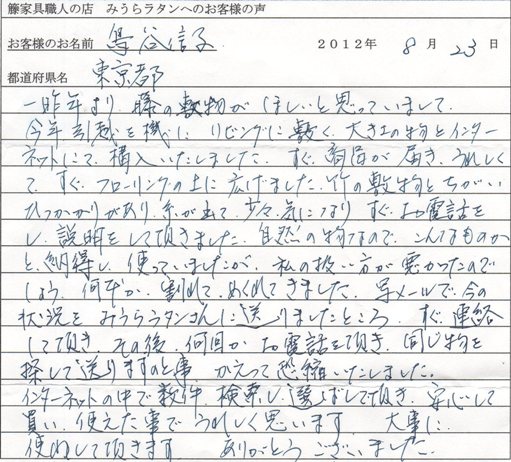 籐家具職人の店 みうらラタンへのお客様の声
お客様のお名前 鳥谷信子 2012年 8月23日
都道府県名 東京都
一昨年より、籐の敷物がほしいと思っていまして、
今年引越を機に リビングに敷く、大きな物をインター
ネットにて、構入いたしました。すぐ商品が届き、うれしく
て、すぐ、フローリングの上に広げました。竹の敷物とちがい
ひっかかりがあり、糸が出て、少々、気になり すぐ、お電話を
し、説明をして頂きました。自然の物なので、こんなものか
と、納得し、使っていましたが、私の扱い方が悪かったので
しょう、何本か、割れて、めくれてきました。写メールで、今の
状況を みうらラタンさんに送りましたところ すぐ、連絡
して頂き、その後、何回か お電話を頂き、同じ物を
探して送りますとの事 かえって恐縮いたしました。
インターネットの中で数件 検索し、選ばして頂き、安心して
買い、使えた事でうれしく思います 大事に
使わして頂きます ありがとう ございました。